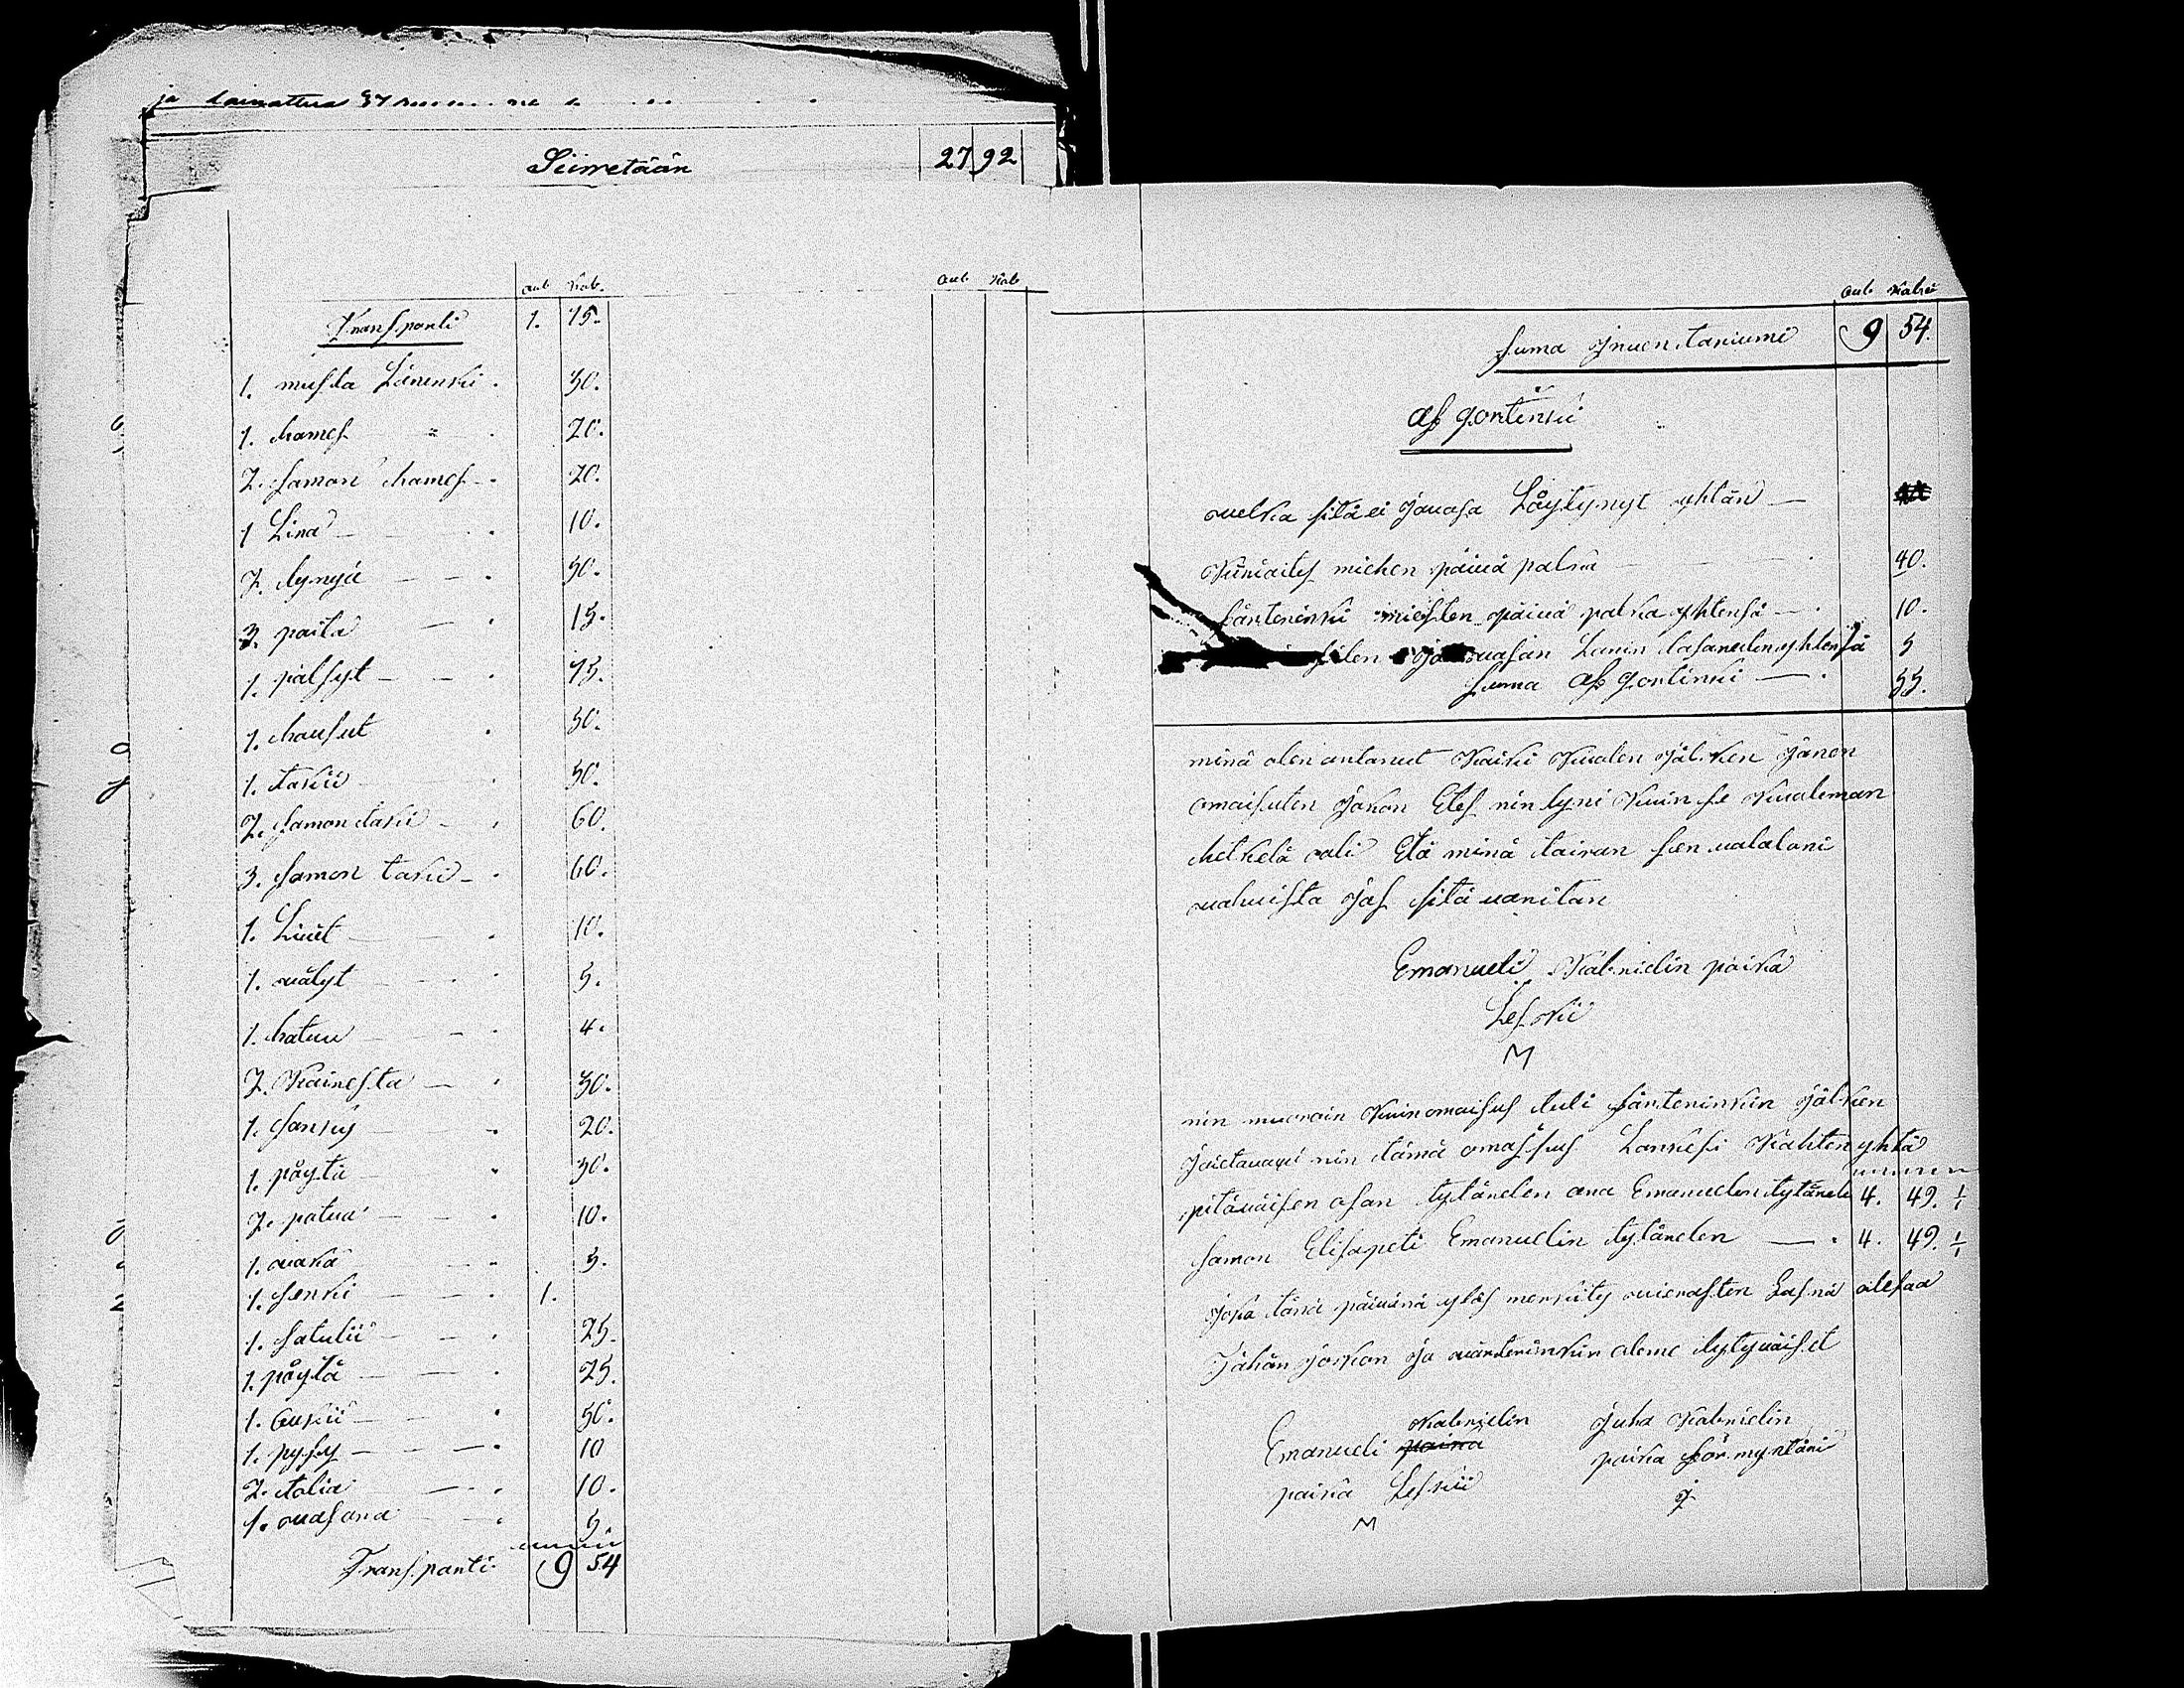 ja lainattua
Siirretään 27 92
rub. kob.
Transporti 1. 15.
1. musta Läninki . 30.
1. hames " . 20.
2. samon hames . 20.
1 Lina . 10.
2. tynyä . 50.
3. paita . 15.
1. pälsyt . 75.
1. housut . 50.
1. takii . 50.
2. samon takii . 60.
3. samon takii . 60.
1. Liiit . 10.
1. wälyt . 5.
1. hatuu . 4.
2. Kainesta . 30.
1. sänkij . 20.
1. påytä . 30.
2. patua . 10.
1. waka . 5.
1. senki . 1.
1. satulii . 25.
1. påytä . 25.
1. Gukii . 50.
1. pyssy . 10
2. talia . 10.
1. wasara . 5.
Transporti 9 54
rub. kob.
rub. Kobee
suma Inuentariumi 9 54.
Af gortinkii
welka sitä ei jäuasa Låytynyt yhtän
Kiriaites miehen päiuä palka 40.
särteninki miesten päiuä palka yhtensä . 10.
silen ja wasan Lanin tasauden yhtensä 5
suma Af gortinki . 55.
minä olen antanut Kaiki Kuolen jälken jänen
omaisuten jakon Etes nin hyni Kuin se Kuoleman
hetkelä oli Etä minä taiuan sen ualalani
wahuista jos sitä uanitan
Emanueli Kabrielin paika
Leskii
M
nin muoroin Kuin omaisus tuli särteninkin jälken
jaietauaxi nin tämä omaisus Lankesi Kahten yhtä
pitäuäisen osan tytärelen ana Emanuelin tytärele 4. 49. 1/1
samon Elisapeti Emanuelin tytärelen . 4. 49. 1/1
joka tänä päiuänä ylås merkity wierasten Läsnä olesaa
Jähän jakoon ja wärterinkin oleme tytyuäiset
Emanueli Kabrielin
paika Leskii
M
Juha Kabrielin
paika sörmyntäri